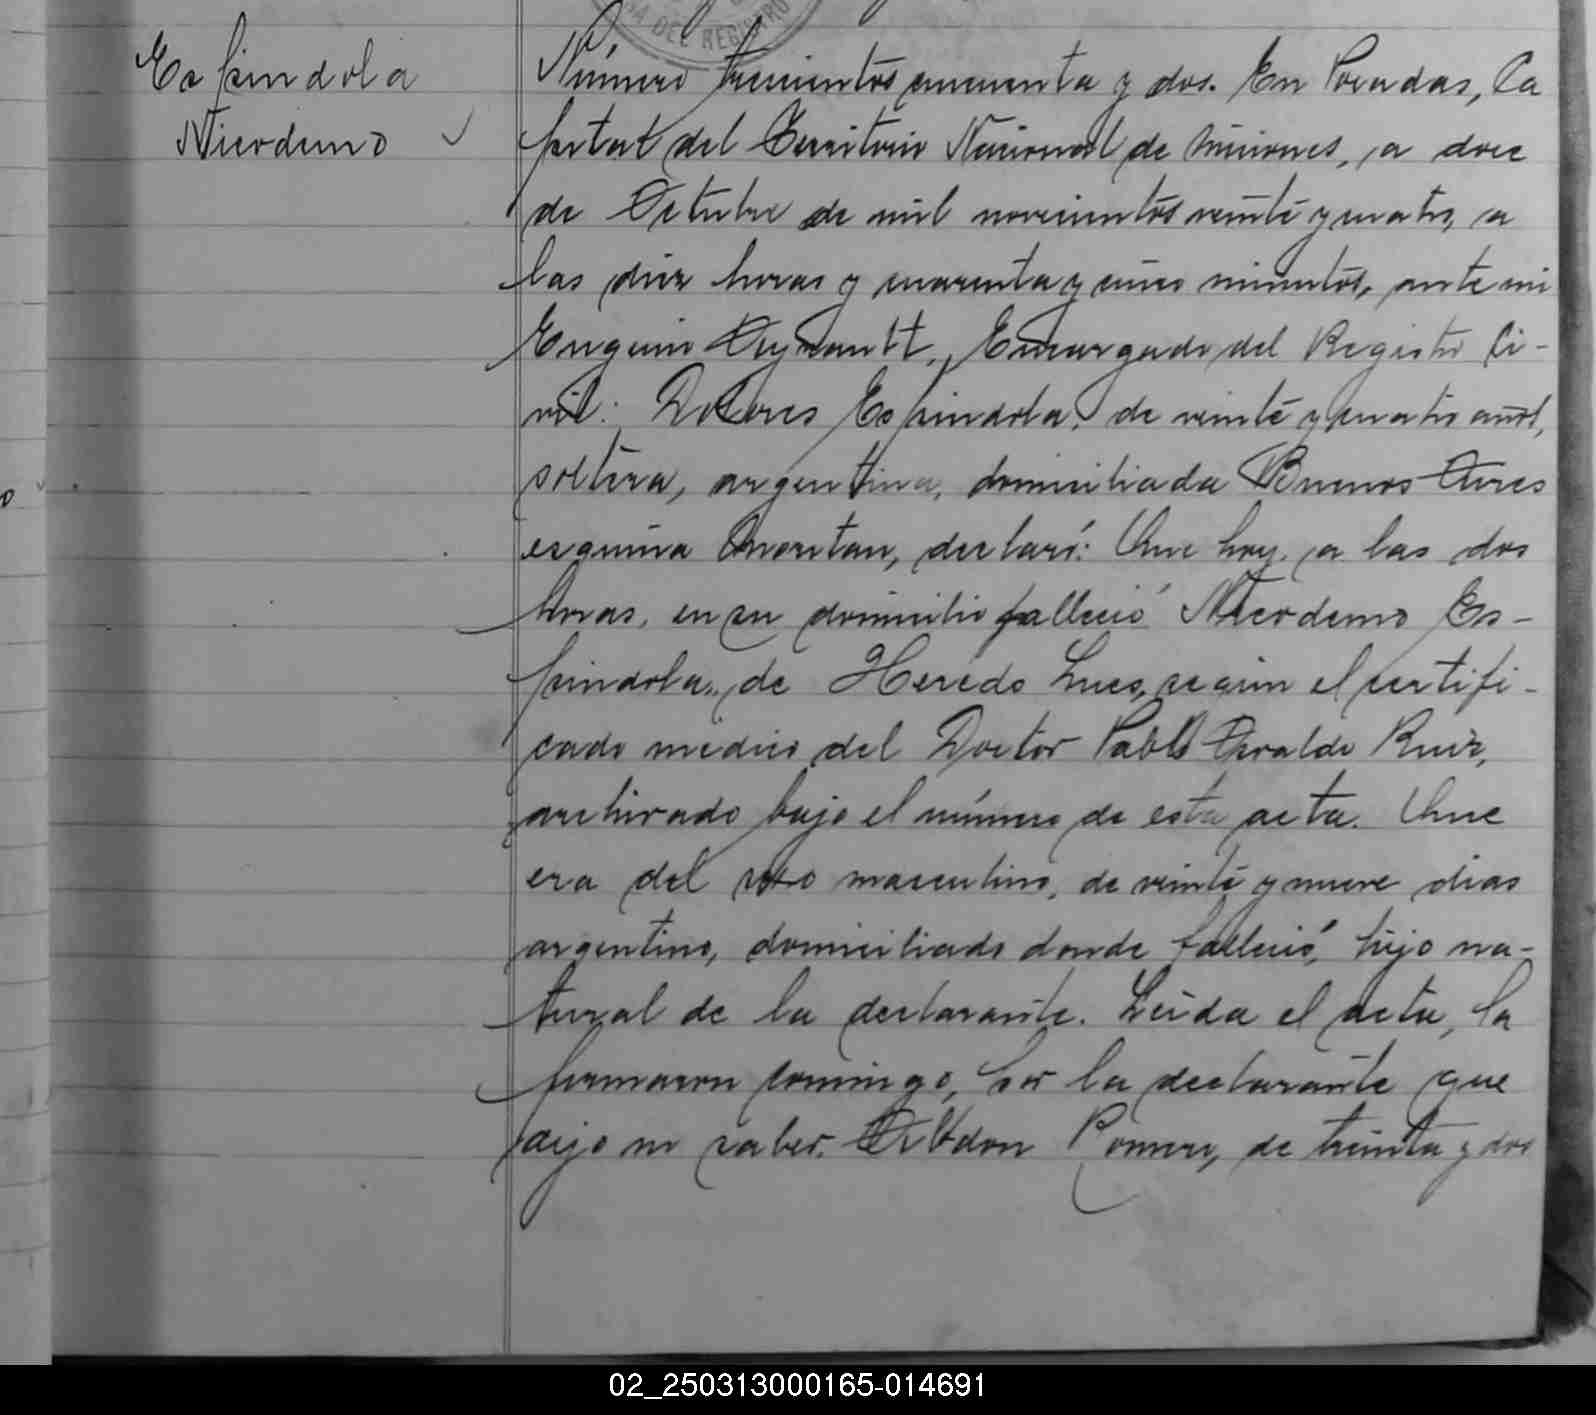 DEL REGISTRO
Espindola
Nicodemo
Número trescientos cincuenta y dos. En Posadas, Ca
pital del Territorio Nacional de Misiones, a doce
de Octubre de mil novecientos veinte y cuatro, a
las diez horas y cuarenta y cinco minutos, ante mi
Encargado del Registro Ci-
vil: Dolores Espindola, de veinte y cuatro años,
soltera, argentina, domiciliada Buenos Aires
esquina declaró: Que hoy, a las dos
horas, en su domicilio falleció Nicodemo Es-
pindola, de Heredo Lues, según el certifi-
cado médico del Doctor Pablo Osvaldo Ruiz,
archivado bajo el número de esta acta. Que
era del sexo masculino, de veinte y nueve dias
argentino, domiciliado donde falleció, hijo na-
tural de la declarante. Leida el acta, la
firmaron conmigo, por la declarante que
dijo no saber, Romero, de treinta y dos
02_250313000165-014691